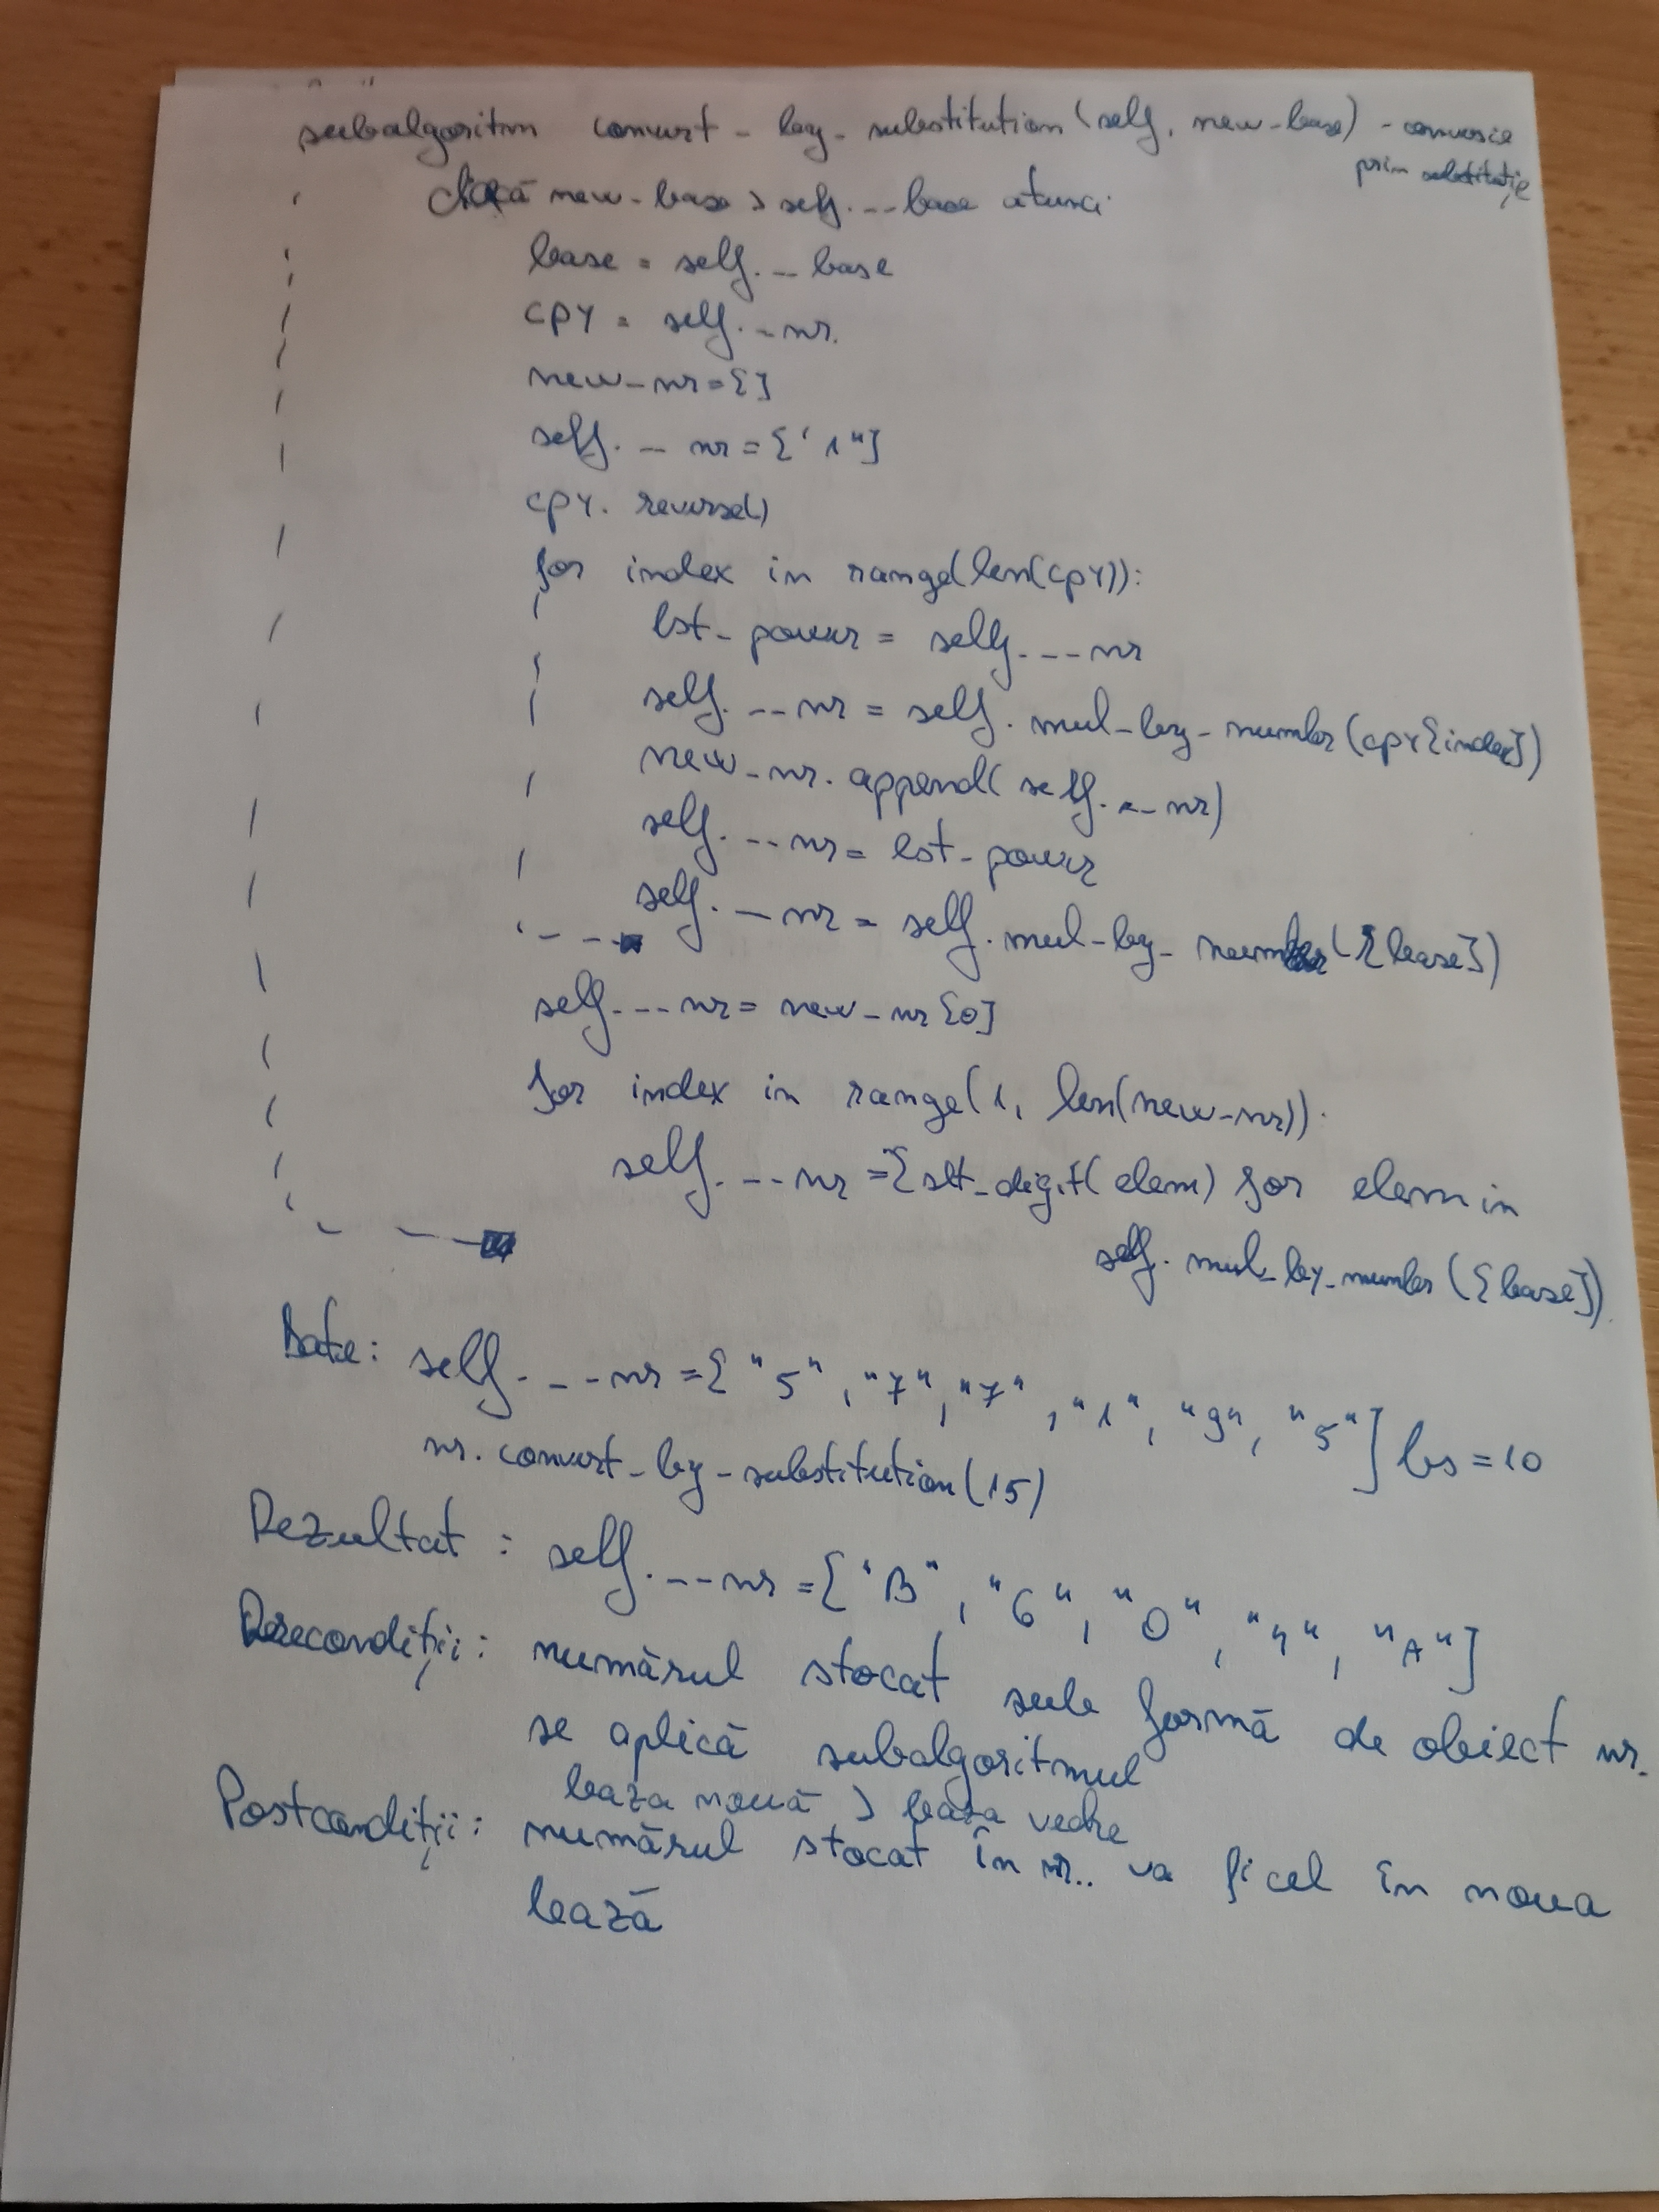 subalgoritm convert_by_substitution(self, new_base) - conversie
prin substituție
dacă new_base > self.__base atunci
base = self.__base
cpy = self.__nr.
new_nr=[]
self.__nr=['1"]
cpy.reverse()
for index in range(len(cpy)):
lst_power = self.__nr
self.__nr = self.mul_by_number(cpy[index])
new_nr.append(self.__nr)
self.__nr = lst_power
self.__nr = self.mul_by_number([base])
self.__nr = new_nr[0]
for index in range(1, len(new_nr)).
self.__nr =[slt_digit(elem) for elem in
self.mul_by_number([base])
Date: self.__nr =["5","7","7","1","9","5"] bs=10
nr.convert_by_substitution(15)
Rezultat: self.__nr =["B","6","0","4","A"]
Precondiții: numărul stocat sub formă de obiect nr.
se aplică subalgoritmul
baza nouă > baza veche
Postcondiții: numărul stocat în nr.. va fi cel în noua
bază